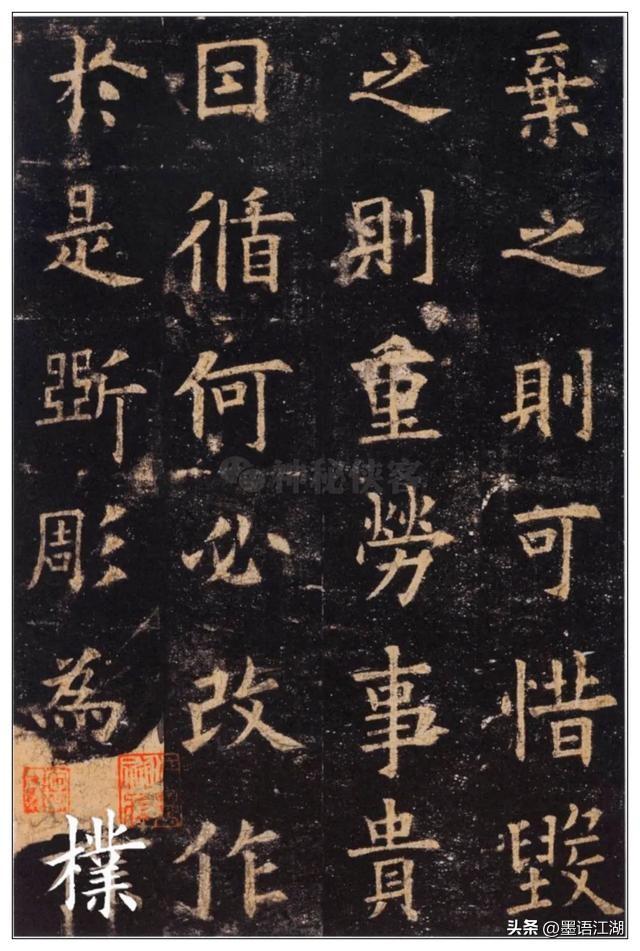 棄之則可惜毀
之則重勞事貴
囙循何必改作
於是斲彫為樸
神秘侠客
头条 @墨语江湖